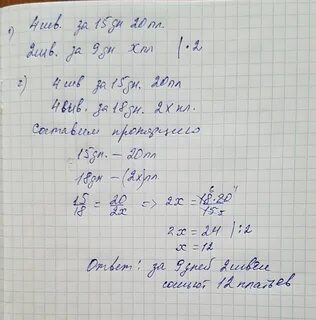 1) 4 шв. за 15 дн 20 пл.
2 шв. за 9 дн x пл | · 2
2) 4 шв за 15 дн. 20 пл
4 шв. за 18 дн. 2x пл.
Составим пропорцию
15 дн. – 20 пл
18 дн – (2x) пл
15/18 = 20/2x => 2x = 18·20/15
2x = 24 | : 2
x = 12
Ответ: за 9 дней 2 швеи
сошьют 12 платьев